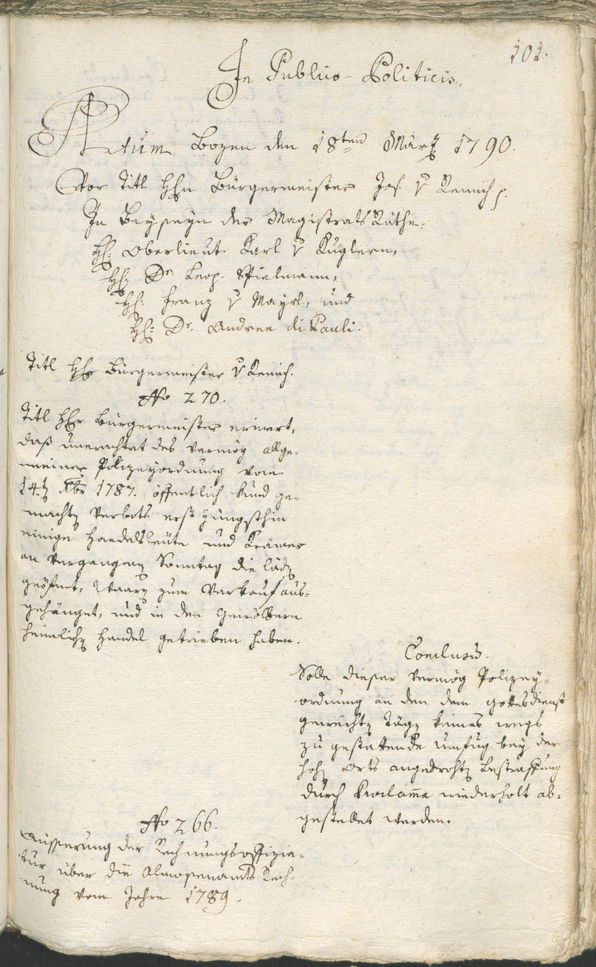 101.
In Publico-Politicis.
Actum Bozen den 18ten März 1790.
Vor Titl Hhn Bürgermeister Jos. v Remich p.
In Beyseyn der Magistrats Räthe:
Hh: Oberlieut Karl v Kuglern,
Hh: Dr Leop. Spielmann,
Hh: Franz v Mayrl, und
Hh: Dr. Andree di Pauli.
Titl Hhr Bürgermeister v Remich.
No 270.
Titl Hhr Bürgermeister erinert,
daß unerachtet des vermög allge-
meiner Polizeyordnung vom
14t Xbr 1787. öffentlich kund ge-
machten Verbots erst jüngsthin
einige Handelsleute und Krämer
an vergangen Sonntag die läden
geöfnet, Waare zum Verkauf aus-
gehänget, und in den Gewölbern
heimlichen Handel getrieben haben.
Conclusum.
Solle dieser vermög Polizey-
ordnung an den dem Gottesdienst
geweihten Tägen keines wegs
zu gestattende Unfug bey der
hohen Orts angedrohten Bestraffung
durch Proclame wiederholt ab-
gestellet werden.
No 266.
Äusserung der Rechnungsoffizia-
tur über die Almosenamts Rech-
nung vom Jahre 1789.